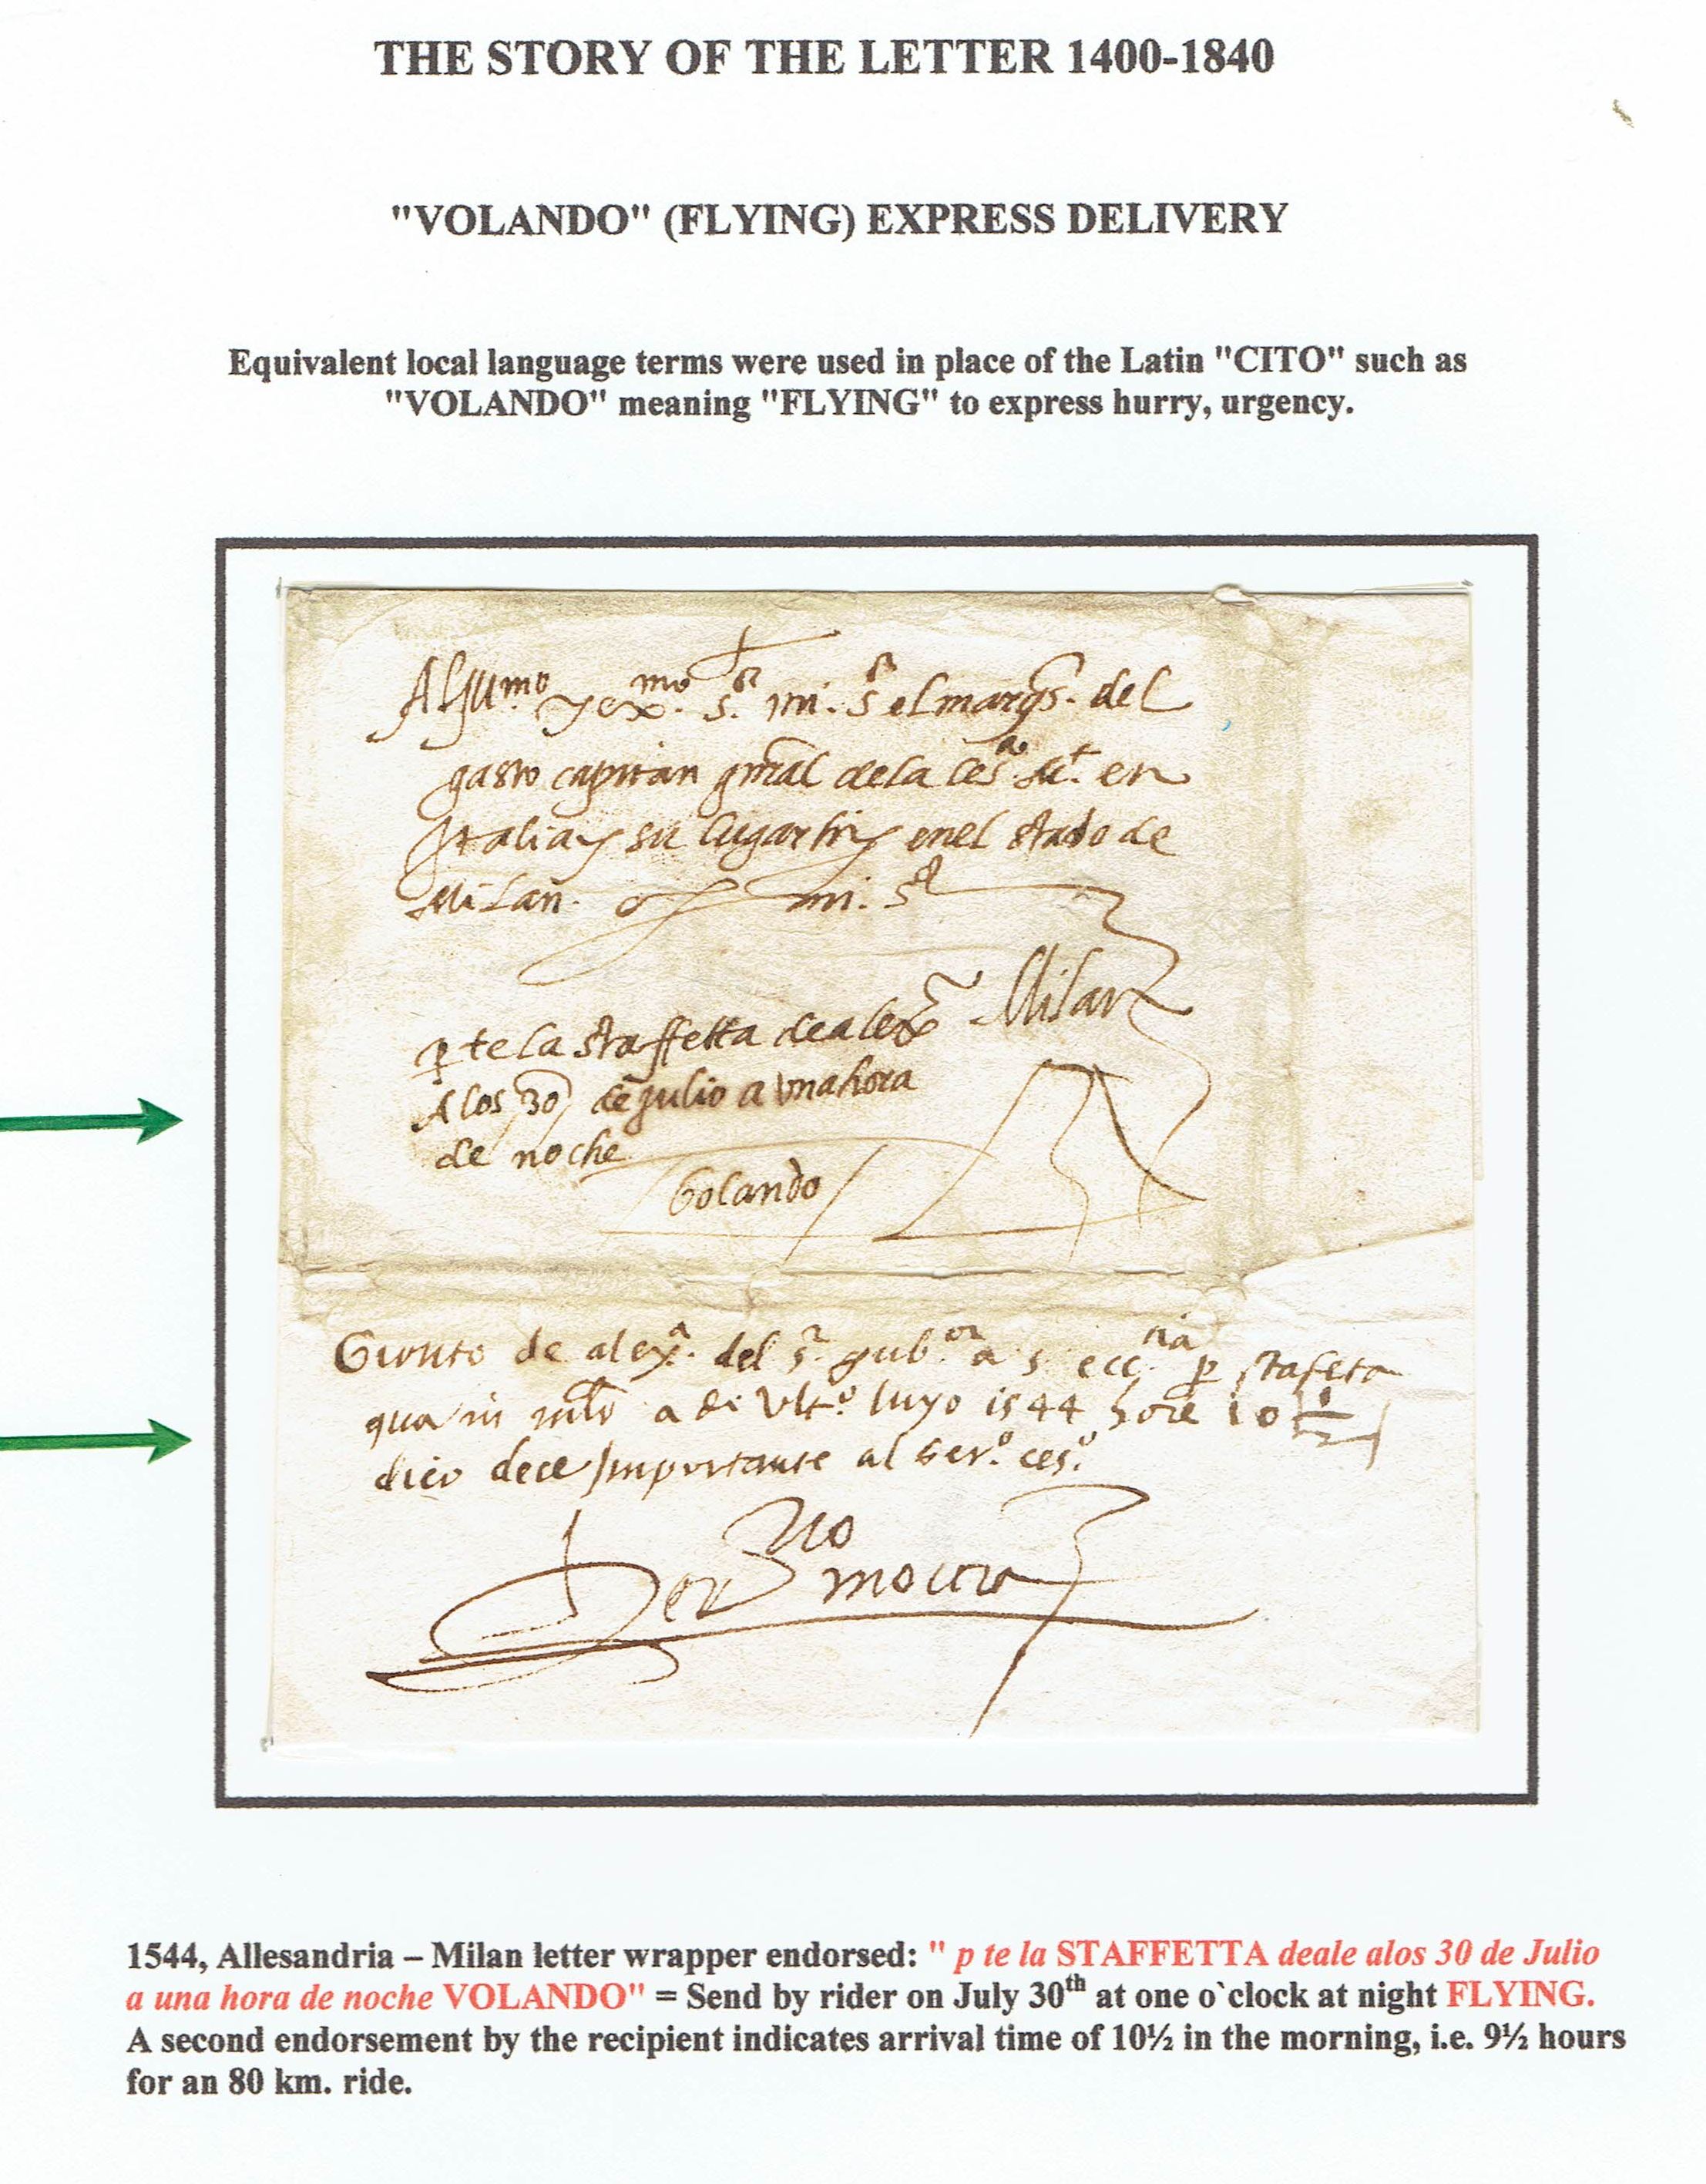 THE STORY OF THE LETTER 1400-1840
"VOLANDO" (FLYING) EXPRESS DELIVERY
Equivalent local language terms were used in place of the Latin "CITO" such as
"VOLANDO" meaning "FLYING" to express hurry, urgency.
Al Illmo. y exmo. s.r mi. s.r el marqs. del
gasto capitan gñral dela ces.a Mt. en
Italia y su lugarti enel stado de
Milan. mi. s.r
Milan
p te la staffetta de alex.a
A los 30 de julio a una hora
de noche
Volando
Gionto de alex.a del s.r gub.or a s. ecc.tia p stafeta
qua in mlo a di ult.o luyo 1544 hore 10 1/2
dico dece importante al ser.o ces.o
1544, Allesandria – Milan letter wrapper endorsed: " p te la STAFFETTA deale alos 30 de Julio
a una hora de noche VOLANDO" = Send by rider on July 30th at one o`clock at night FLYING.
A second endorsement by the recipient indicates arrival time of 10½ in the morning, i.e. 9½ hours
for an 80 km. ride.